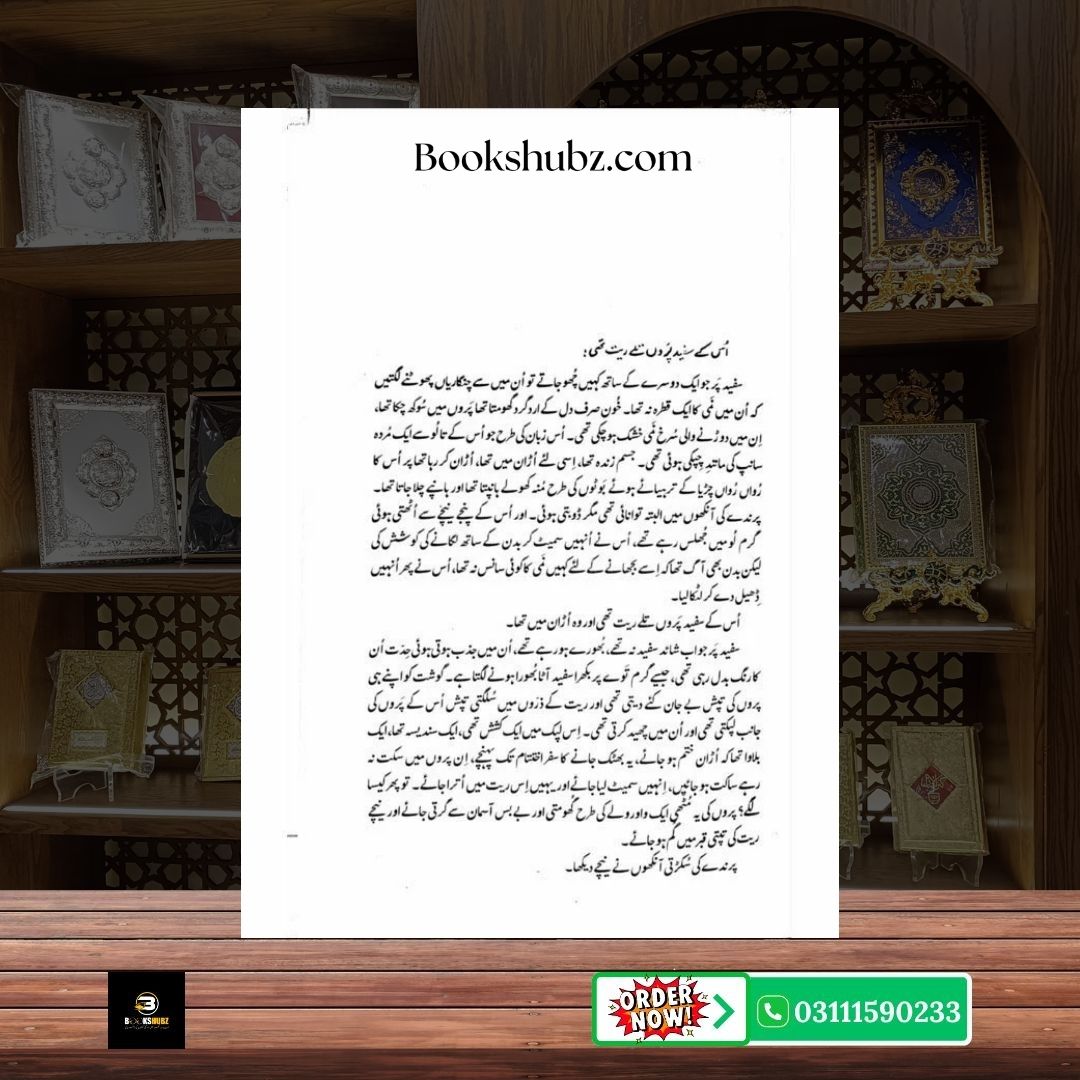 Bookshubz.com
اُس کے سفید پَروں تلے ریت تھی:
سفید پَر جو ایک دوسرے کے ساتھ کہیں چُھو جاتے تو اُن میں سے چنگاریاں پھوٹنے لگتیں
کہ اُن میں نَمی کا ایک قطرہ نہ تھا۔ خُون صرف دل کے ارد گرد گھومتا تھا پَروں میں سُوکھ چکا تھا،
اِن میں دوڑنے والی سُرخ نَمی خشک ہو چکی تھی۔ اُس زبان کی طرح جو اُس کے تالُو سے ایک مُردہ
سانپ کی مانند چپکی ہوئی تھی۔ جسم زندہ تھا، اِسی لئے اُڑان میں تھا، اُڑان کر رہا تھا پر اُس کا
رُواں رُواں چڑیا کے تربیائے ہوئے بَوٹوں کی طرح مُنہ کھولے ہانپتا تھا اور ہانپے چلا جاتا تھا۔
پرندے کی آنکھوں میں البتہ توانائی تھی مگر ڈوبتی ہوئی۔ اور اُس کے پنجے نیچے سے اُٹھتی ہوئی
گرم لُو میں جُھلس رہے تھے، اُس نے اُنہیں سمیٹ کر بدن کے ساتھ لگانے کی کوشش کی
لیکن بدن بھی آگ تھا کہ اِسے بجھانے کے لئے کہیں نَمی کا کوئی سانس نہ تھا، اُس نے پھر اُنہیں
ڈھیل دے کر لٹکا لیا۔
اُس کے سفید پَروں تلے ریت تھی اور وہ اُڑان میں تھا۔
سفید پَر جو اب شائد سفید نہ تھے، بُھورے ہو رہے تھے، اُن میں جذب ہوتی ہوئی حِدّت اُن
کا رنگ بدل رہی تھی، جیسے گرم توَے پر بکھرا سفید آٹا بُھورا ہونے لگتا ہے۔ گوشت کو اپنے ہی
پروں کی تپش بے جان کئے دیتی تھی اور ریت کے ذرّوں میں سُلگتی تپش اُس کے پَروں کی
جانب لپکتی تھی اور اُن میں چھید کرتی تھی۔ اِس لپک میں ایک کشش تھی، ایک سندیسہ تھا، ایک
بلاوا تھا کہ اُڑان ختم ہو جائے، یہ بھٹک جانے کا سفر اختتام تک پہنچے، اِن پروں میں سکت نہ
رہے ساکت ہو جائیں، اِنہیں سمیٹ لیا جائے اور یہیں اِس ریت میں اُترا جائے۔ تو پھر کیسا
لگے؟ پروں کی یہ مُٹھی ایک واورولے کی طرح گُھومتی اور بے بس آسمان سے گرتی جائے اور نیچے
ریت کی تپتی قبر میں گم ہو جائے۔
پرندے کی سُکڑتی آنکھوں نے نیچے دیکھا۔
BOOKSHUBZ
ORDER
NOW!
03111590233